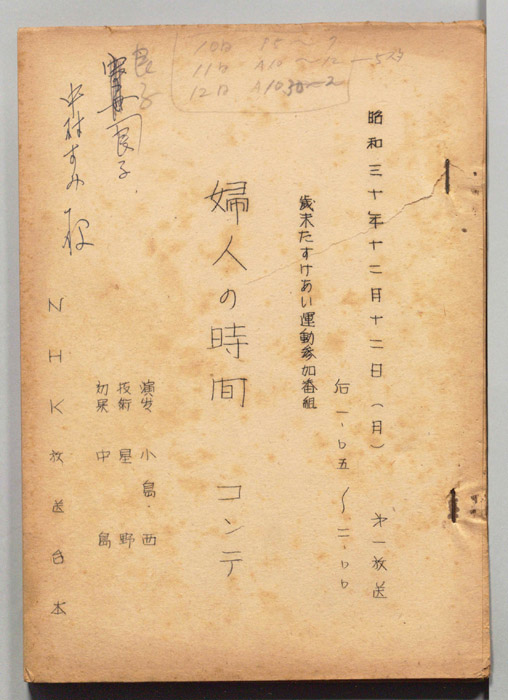 昭和三十年十二月十二日(月)
第一放送
后一.〇五〜二.〇〇
歳末たすけあい運動参加番組
婦人の時間 コンテ
演出 小島 西
技術 星野
効果 中島
NHK放送台本
10日
11日 A10〜12
12日 A10
良子
中村すみ